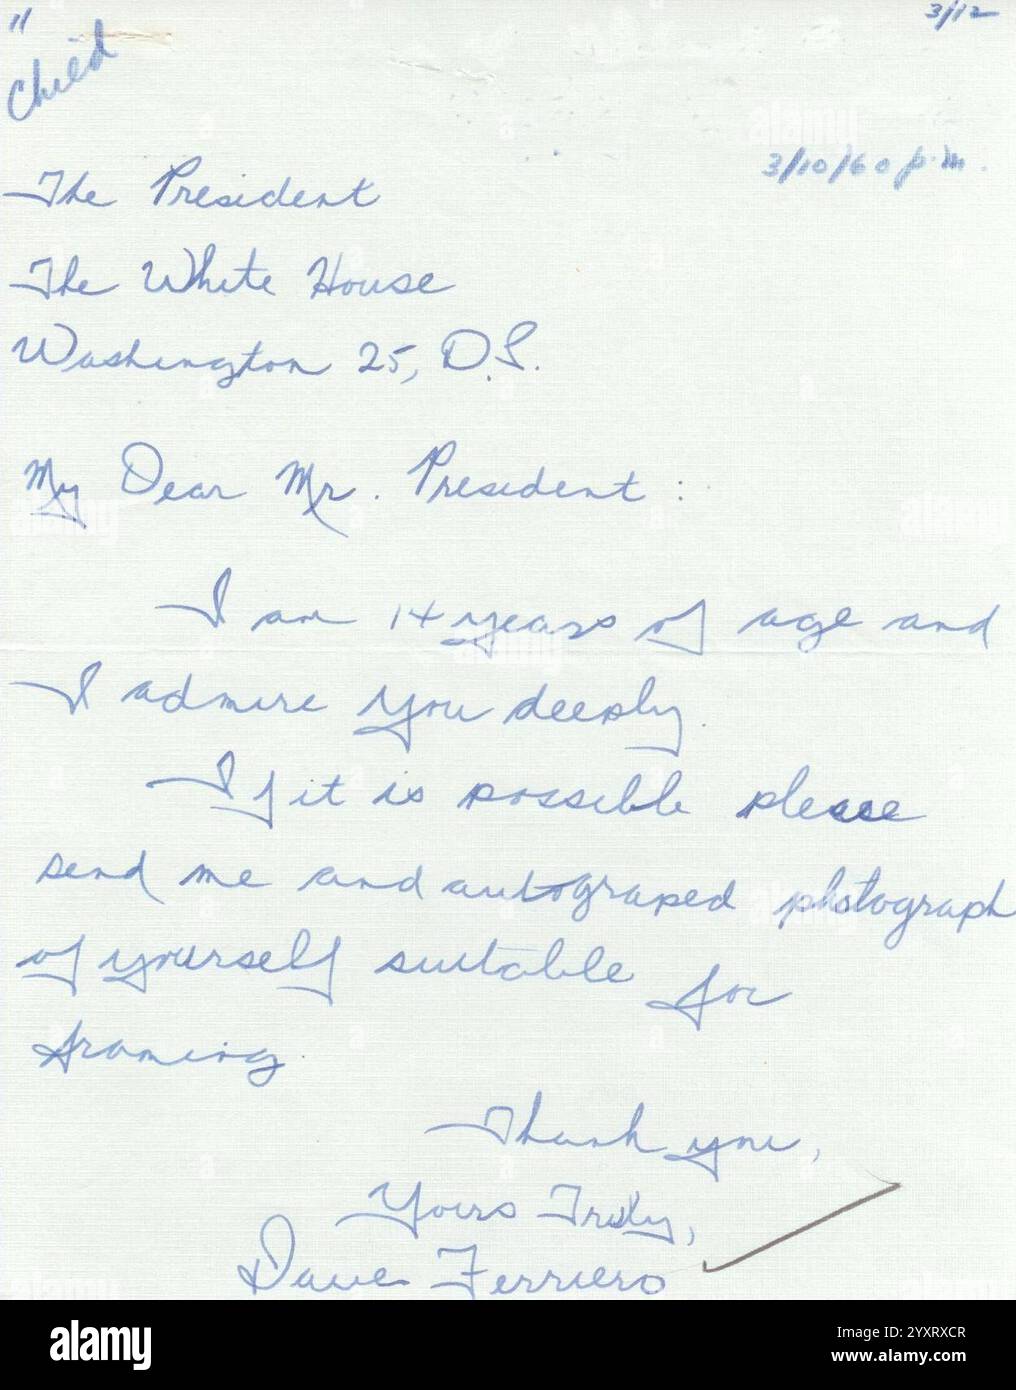 "
Child
3/12
3/10/60 p.m.
The President
The White House
Washington 25, D.C.
My Dear Mr. President :
I am 14 years of age and
I admire you deeply.
If it is possible please
send me and autograped photograph
of yourself suitable for
framing.
Thank you,
Yours Truly,
Dave Ferriero
alamy
Image ID: 2YXRXCR
www.alamy.com